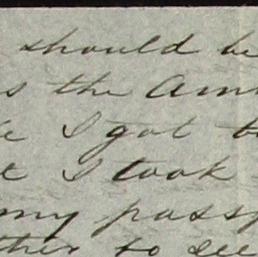 should be
s the Am
I got b
t I took
my passp
ther to see